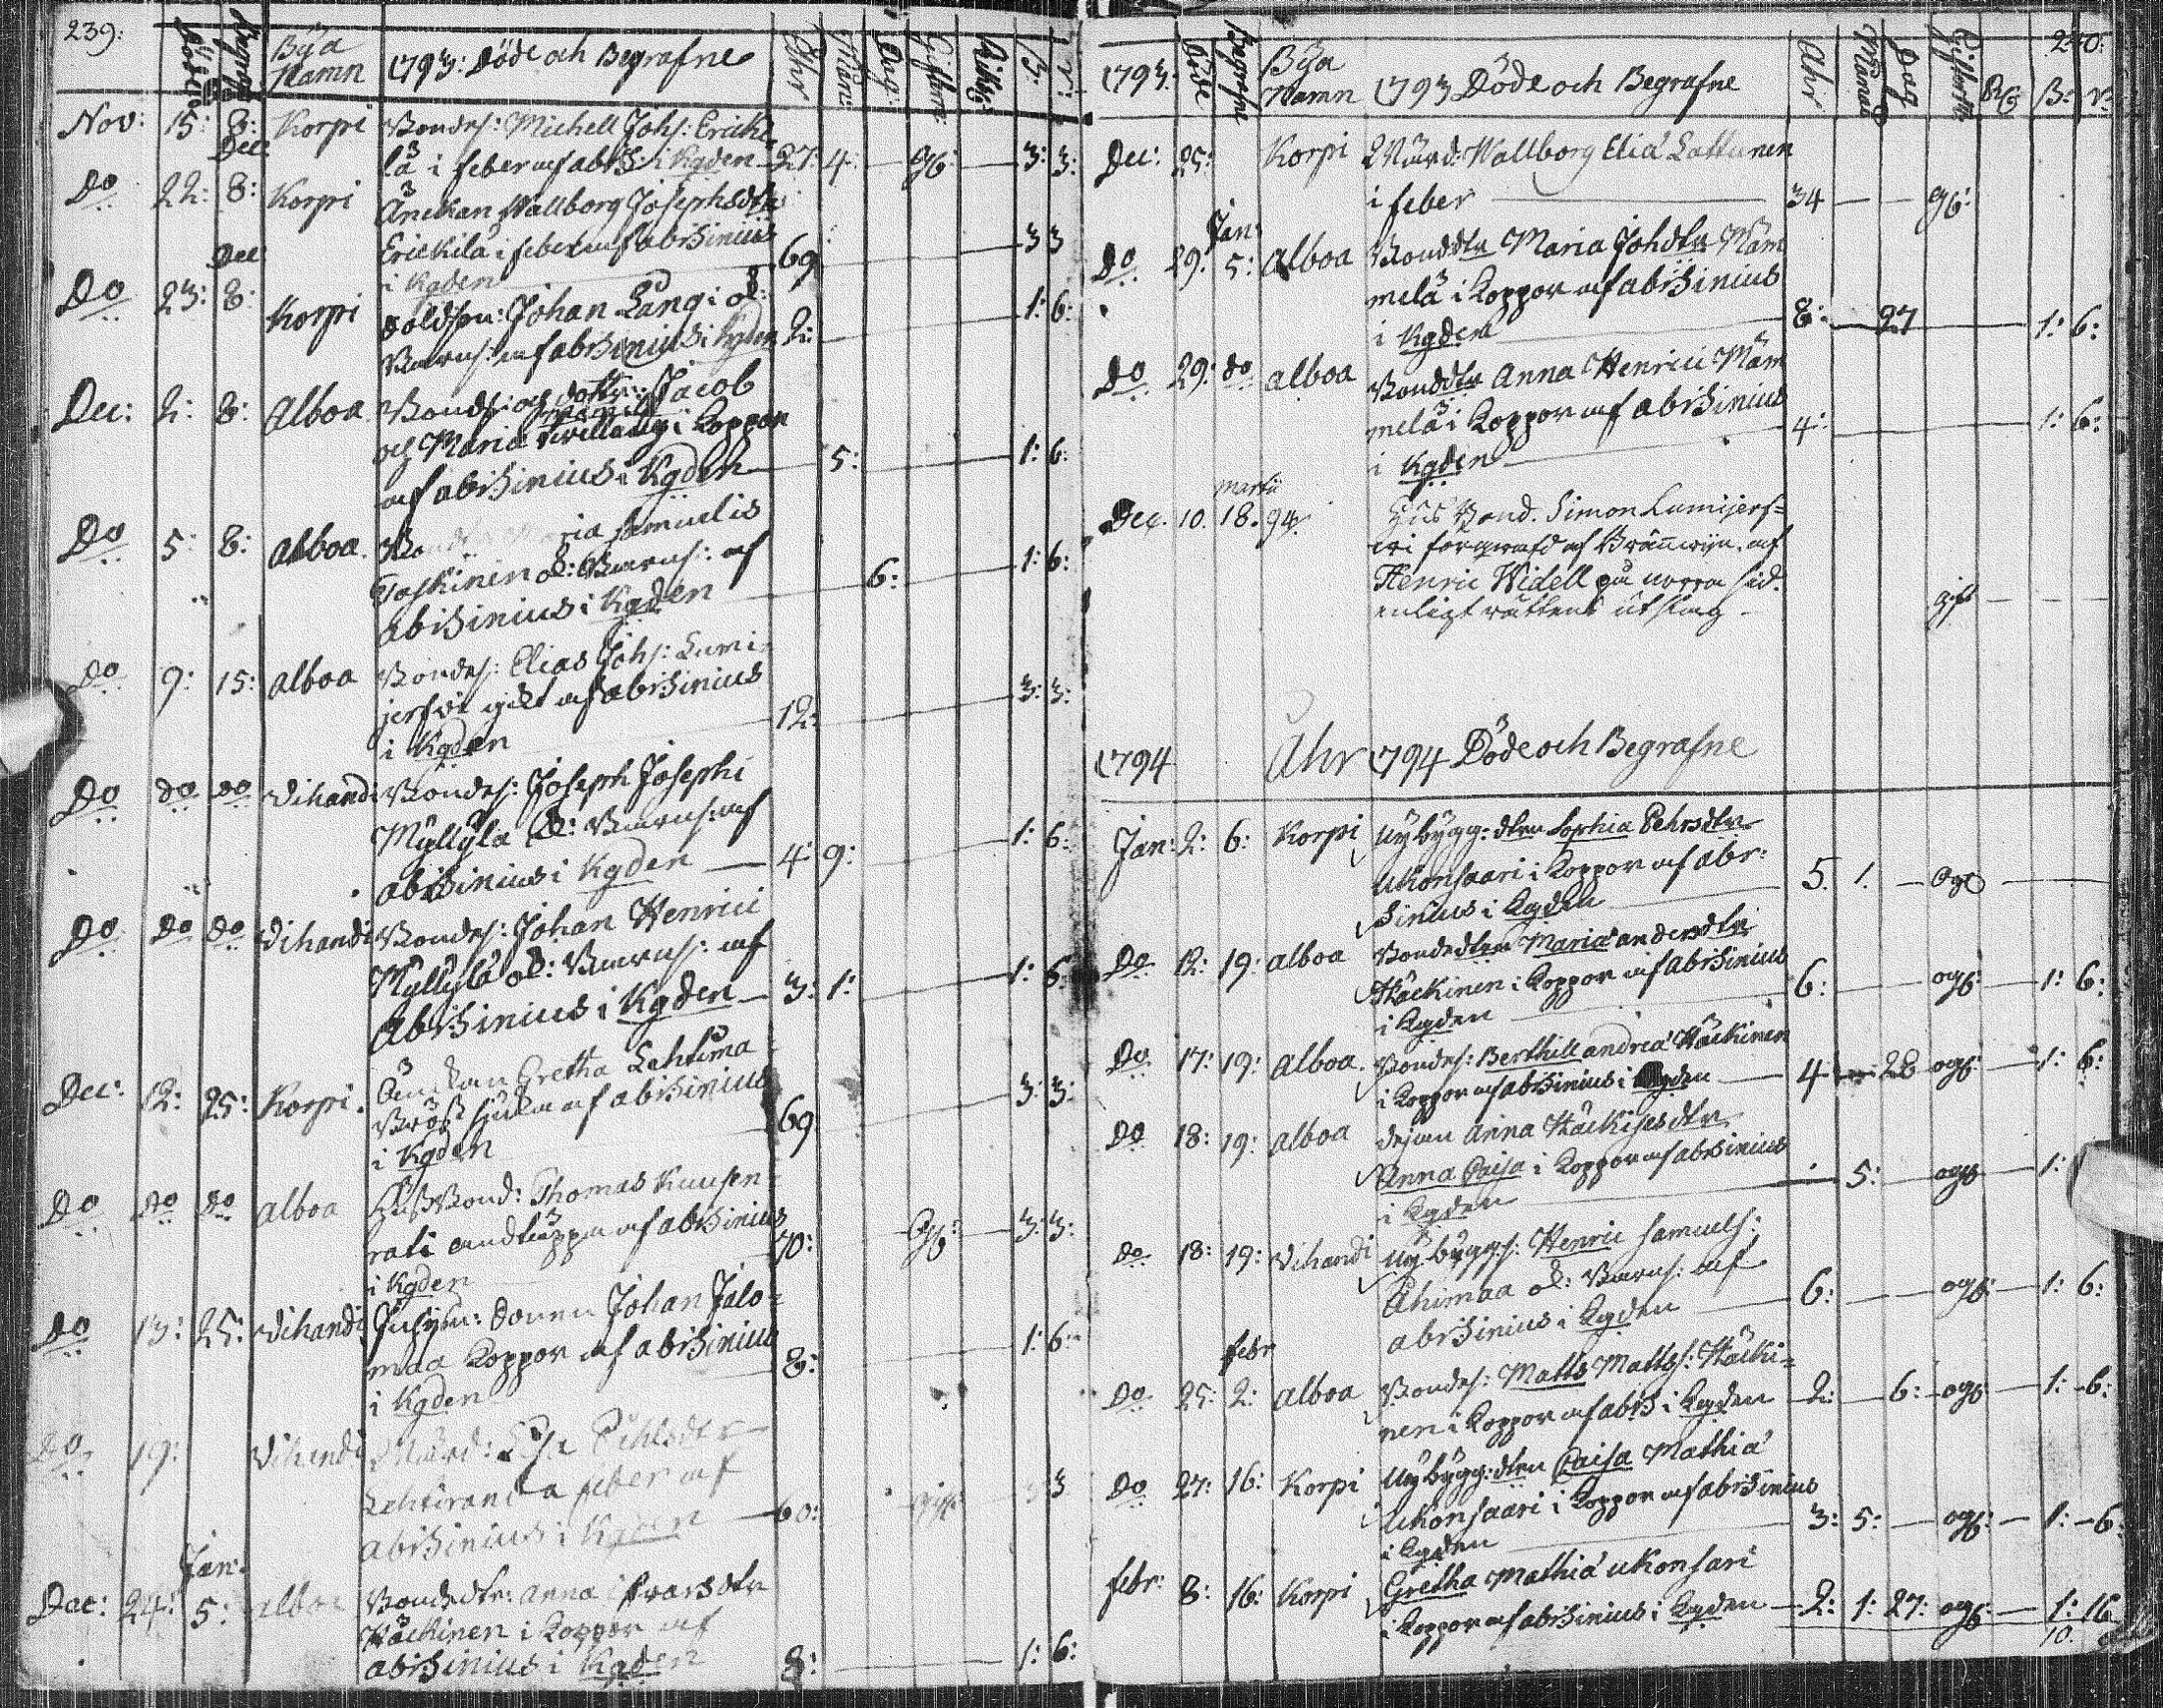 239:
Döde
Begrafne
Bÿa
Namn
1793: Döde och Begrafne
Åhr
Mån:
Dag:
Giftom:
B:
Nov: 15: 8: Dec Korpi Bondes: Michell Johs: Ericki
lä i feber af abrs: i Kgden 27: 4 gb: 3: 3:
Do 22: 8: Korpi Änckan Wallborg Josephsdtr
Erickilä i feber af abrsinius
i Kgden 69 3 3
Dec
Do 23: 8: Korpi Soldson: Johan Lång i ok:
Barns: af abrsinius i Kgden 2: 1: 6:
Dec: 2: 8: Alboa Bondson och dotter: Jacob
och Maria Tvilling i Koppor
af abrsinius i Kgden 5: 1: 6:
Do 5: 8: Alboa Maria Samuelis
Toskinen ok: Barns: af
abrsinius i Kgden 6: 1: 6:
Do 9: 15: Alboa Bondes: Elias Johs: Lumi-
jerfvi gikt af abrsinius
i Kgden 12: 3: 3:
Do do do Vihandi Bondes: Joseph Josephi
Myllylä ok: Barns: af
abrsinius i Kgden 4: 9: 1: 6:
Do Do Do Vihandi Bondes: Johan Henrici
Myllylä ok: Barns: af
Abrsinius i Kgden 3: 1: 1: 6:
Dec: 12: 25: Korpi. Änckan Gretha Lehtima
Bröst siuka af abrsinius
i Kgden 69 3: 3:
Do Do Do Alboa Huss Bond: Thomas Kuusen-
rati andtäppa af abrsinius
i Kgden 70: gb: 3: 3:
Do 13: 25: Vihandi Johan Jalo-
maa Koppor af abrsinius
i Kgden 8: 1: 6:
Do 19: Vihandi Pehlsdtr
Lehtiranda feber af
abrsinius i Kgden 60: gift 3 3
Jan:
Dec: 24: 5: Alboa Bondedtr: Anna Ifvarsdtr
Häckinen i Koppor af
abrsinius i Kgden 8: 1: 6:
240:
1793:
Döde
Begrafne
Bÿa
Namn
1793 Döde och Begrafne
Ahr
Månad
Dag
Gifvorta
B:
Dec: 25: Korpi Wärd: Wallborg Eliä Lattunen
i feber 34 gb:
Jan:
Do 29: 5: Alboa Bonddtr Maria Johdtr Mäm
melä i Koppor af abrsinius
i Kgden 8: 27 1: 6:
Do 29: do Alboa Bonddtr Anna Henrici Mäm
melä i Koppor af abrsinius
i Kgden 4: 1: 6:
martii
Dec. 10. 18. 94. Hus Bond. Simon Lumijerf-
wi förgiwfd af Bränwijn. af
Henric Widell på norra sid.
enligt rättens utslag. gift
1794 Åhr 1794 Döde och Begrafne
Jan: 2: 6: Korpi Nÿbÿgg: dtren Sophia Pehrsdtr
Ukonsaari i Koppor af abr:
sinius i Kgden 5. 1. ogb
Do 12: 19: Alboa Bondedtren Maria andersdtr
Häckinen i Koppor af abrsinius
i Kgden 6: ogb: 1: 6:
Do 17: 19: Alboa. Bondes: Berthill andreä Häckinen
i Koppor af abrsinius i Kgden 4 28 ogb: 1: 6:
Do 18: 19: Alboa dejan Anna Häckises dtr
Anna Caisa i Koppor af abrsinius
i Kgden 5: ogb 1:
Do 18: 19: Vihandi Nÿ bÿggs: Henric Samuels:
Ahimaa ok: Barns: af
abrsinius i Kgden 6: ogb: 1: 6:
febr
Do 25: 2: Alboa Bondes: Matts Mattss: Häcki-
nen i Koppor af abrs i Kgden 2: 6: ogb 1: 6:
Do 27: 16: Korpi Nÿ bÿgg: dtren Caisa Mathiä
Ukonsaari i Koppor af abrsinius
i Kgden 3: 5: ogb: 1: 6:
febr: 8: 16: Korpi Gretha Mathiä ukonsari
i Koppor af abrsinius i Kgden 2: 1: 27: ogb: 1: 16
10.